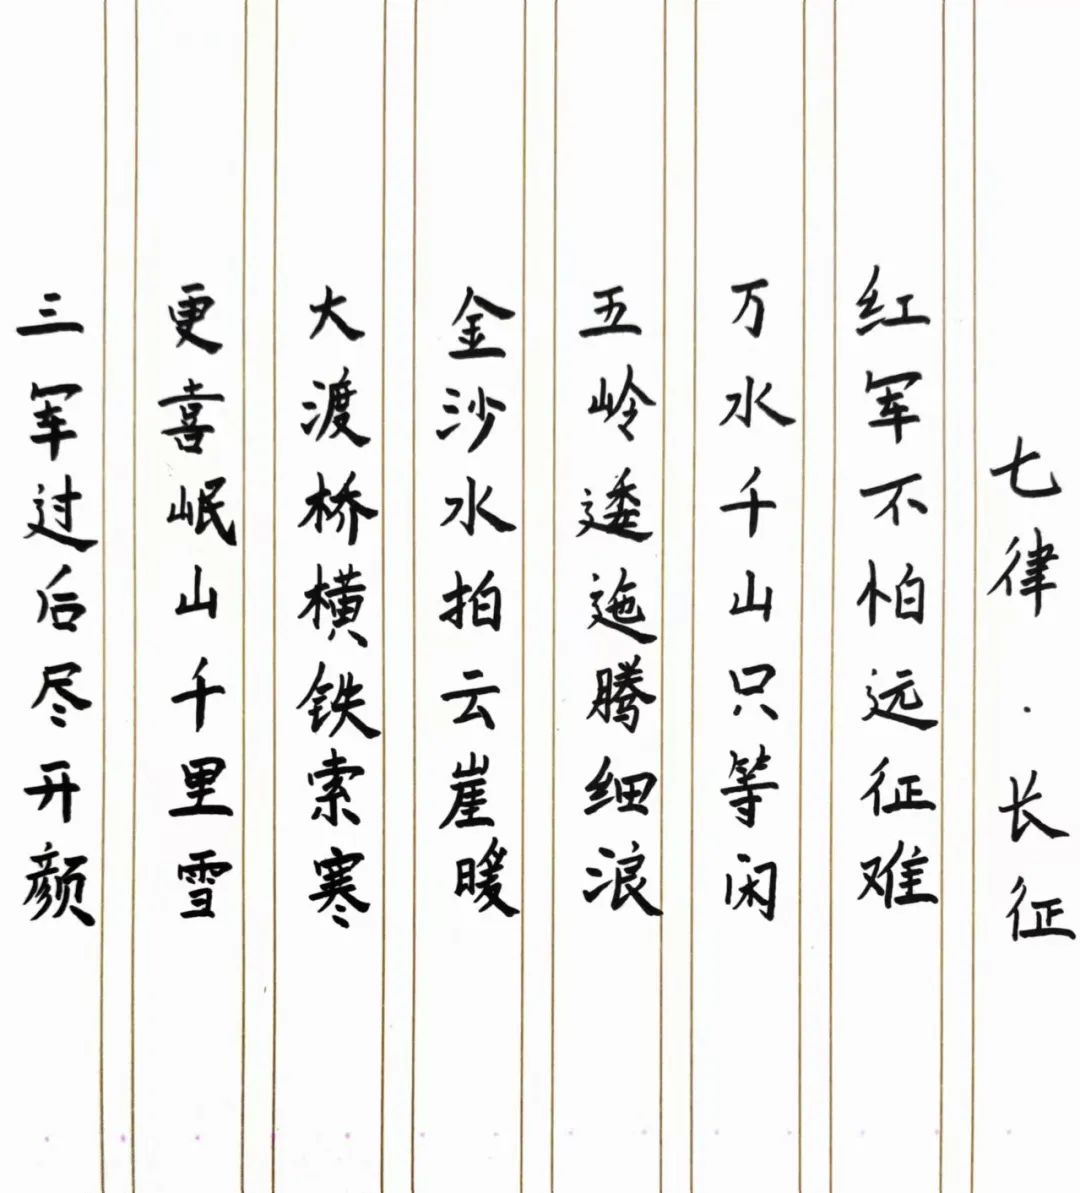 七律·长征
红军不怕远征难
万水千山只等闲
五岭逶迤腾细浪
金沙水拍云崖暖
大渡桥横铁索寒
更喜岷山千里雪
三军过后尽开颜